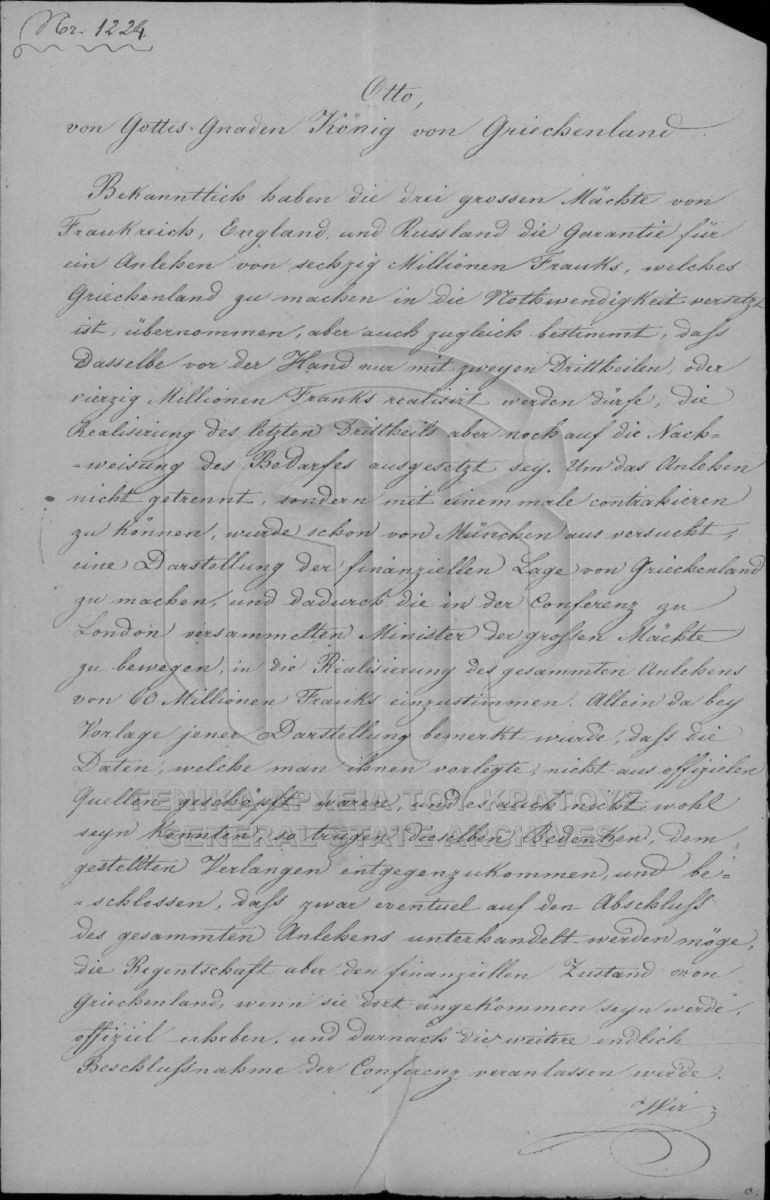 Nr. 1224.
Otto,
von Gottes Gnaden König von Griechenland
Bekanntlich haben die drei grossen Mächte von
Frankreich, England, und Russland die Garantie für
ein Anlehen von sechzig Millionen Franks, welches
Griechenland zu machen in die Nothwendigkeit versetzt
ist, übernommen, aber auch zugleich bestimmt, daſs
dasselbe vor der Hand nur mit zweyen Drittheilen, oder
vierzig Millionen Franks realisirt werden dürfe, die
Realisirung des letzten Drittheils aber noch auf die Nach-
-weisung des Bedarfes ausgesetzt sey. Um das Anlehen
nicht getrennt, sondern mit einemmale contrahieren
zu können, wurde schon von München aus versucht,
eine Darstellung der finanziellen Lage von Griechenland
zu machen, und dadurch die in der Conferenz zu
London versammelten Minister der groſsen Mächte
zu bewegen, in die Realisierung des gesammten Anlehens
von 60 Millionen Franks einzustimmen. Allein da bey
Vorlage jener Darstellung bemerkt wurde, daſs die
Daten, welche man ihnen vorlegte, nicht aus offizielen
Quellen geschöpft waren, und es auch nicht wohl
seyn konnten, so trugen dieselben Bedenken, dem
gestellten Verlangen entgegenzukommen, und be-
-schlossen, daſs zwar eventuel auf den Abschluſs
des gesammten Anlehens unterhandelt werden möge,
die Regentschaft aber den finanziellen Zustand von
Griechenland, wenn sie dort angekommen seyn werde,
offiziel erheben, und darnach die weitere endlich
Beschluſsnahme der Conferenz veranlassen werde.
Wir
ΓΕΝΙΚΑ ΑΡΧΕΙΑ ΤΟΥ ΚΡΑΤΟΥΣ
GENERAL STATE ARCHIVES